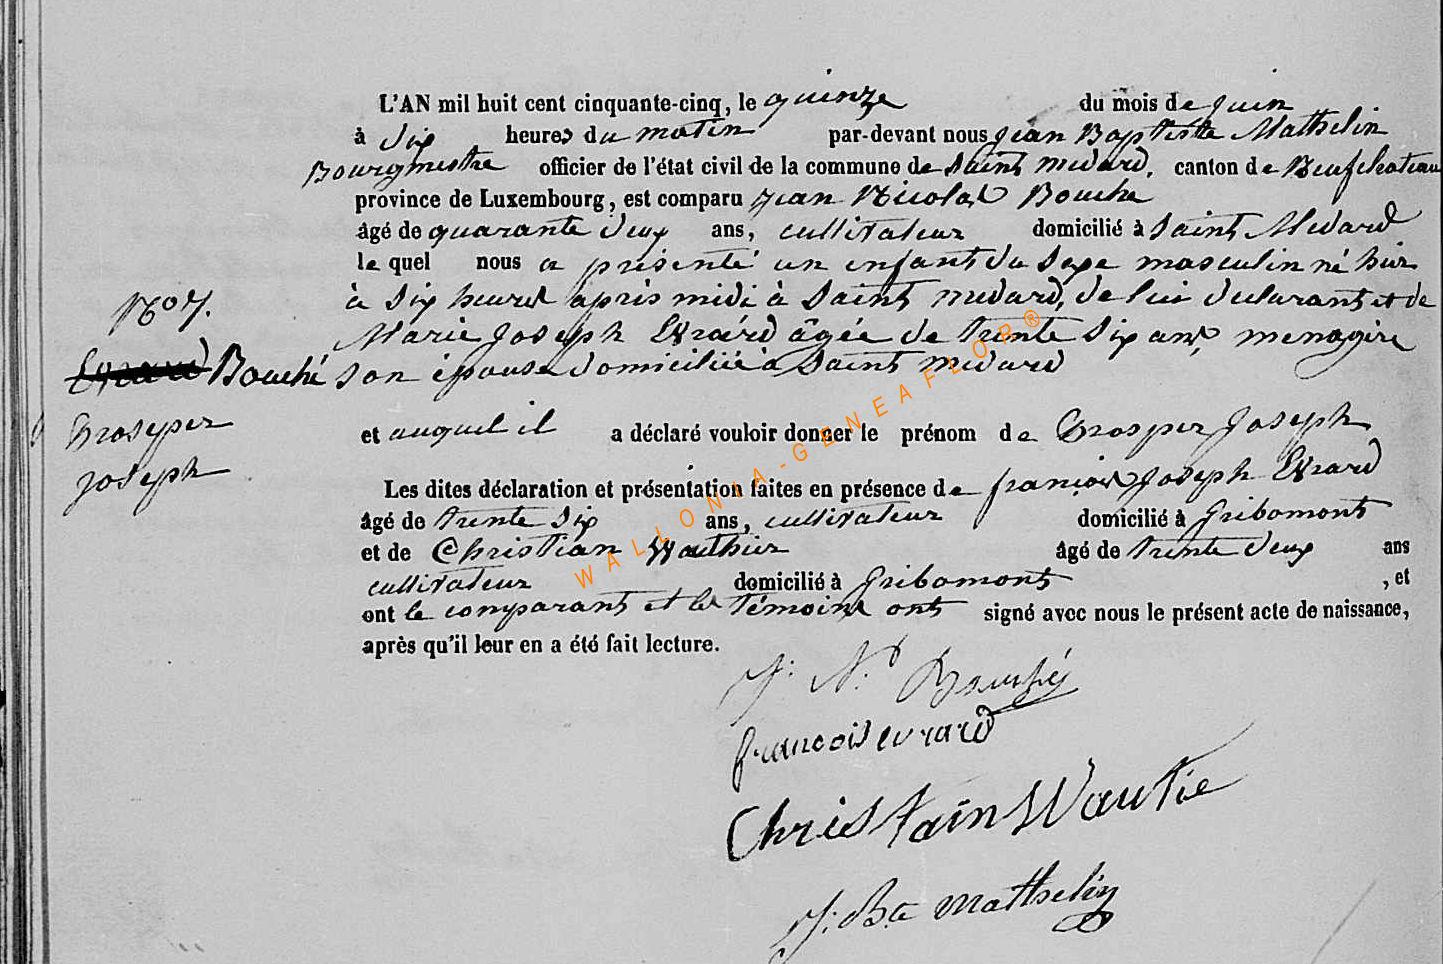 L'AN mil huit cent cinquante-cinq, le quinze du mois de juin
à six heures du matin par-devant nous jean Baptiste Mathelin
Bourgmestre officier de l'état civil de la commune de Saint medard, canton de Neufchateau
province de Luxembourg, est comparu jean Nicolas Bouché
âgé de quarante deux ans, cultivateur domicilié à Saint Medard
le quel nous a présenté un enfant du sexe masculin né hier
à six heures après midi à Saint medard, de lui declarant et de
Marie joseph Evrard âgée de trente six ans, menagère
son épouse domiciliée à Saint medard
No 7.
Evrard Bouché
Prosper
joseph
et auquel il a déclaré vouloir donner le prénom de Prosper joseph
Les dites déclaration et présentation faites en présence de françois joseph Evrard
âgé de trente six ans, cultivateur domicilié à Gribomont
et de Christian Wauthier âgé de trente deux ans
cultivateur domicilié à Gribomont , et
ont le comparant et les témoins ont signé avec nous le présent acte de naissance,
après qu'il leur en a été fait lecture.
J. N. Bouché
francois evrard
Christain Wautie
J. Bte Mathelin
WALLONIA-GENEAFLOR®